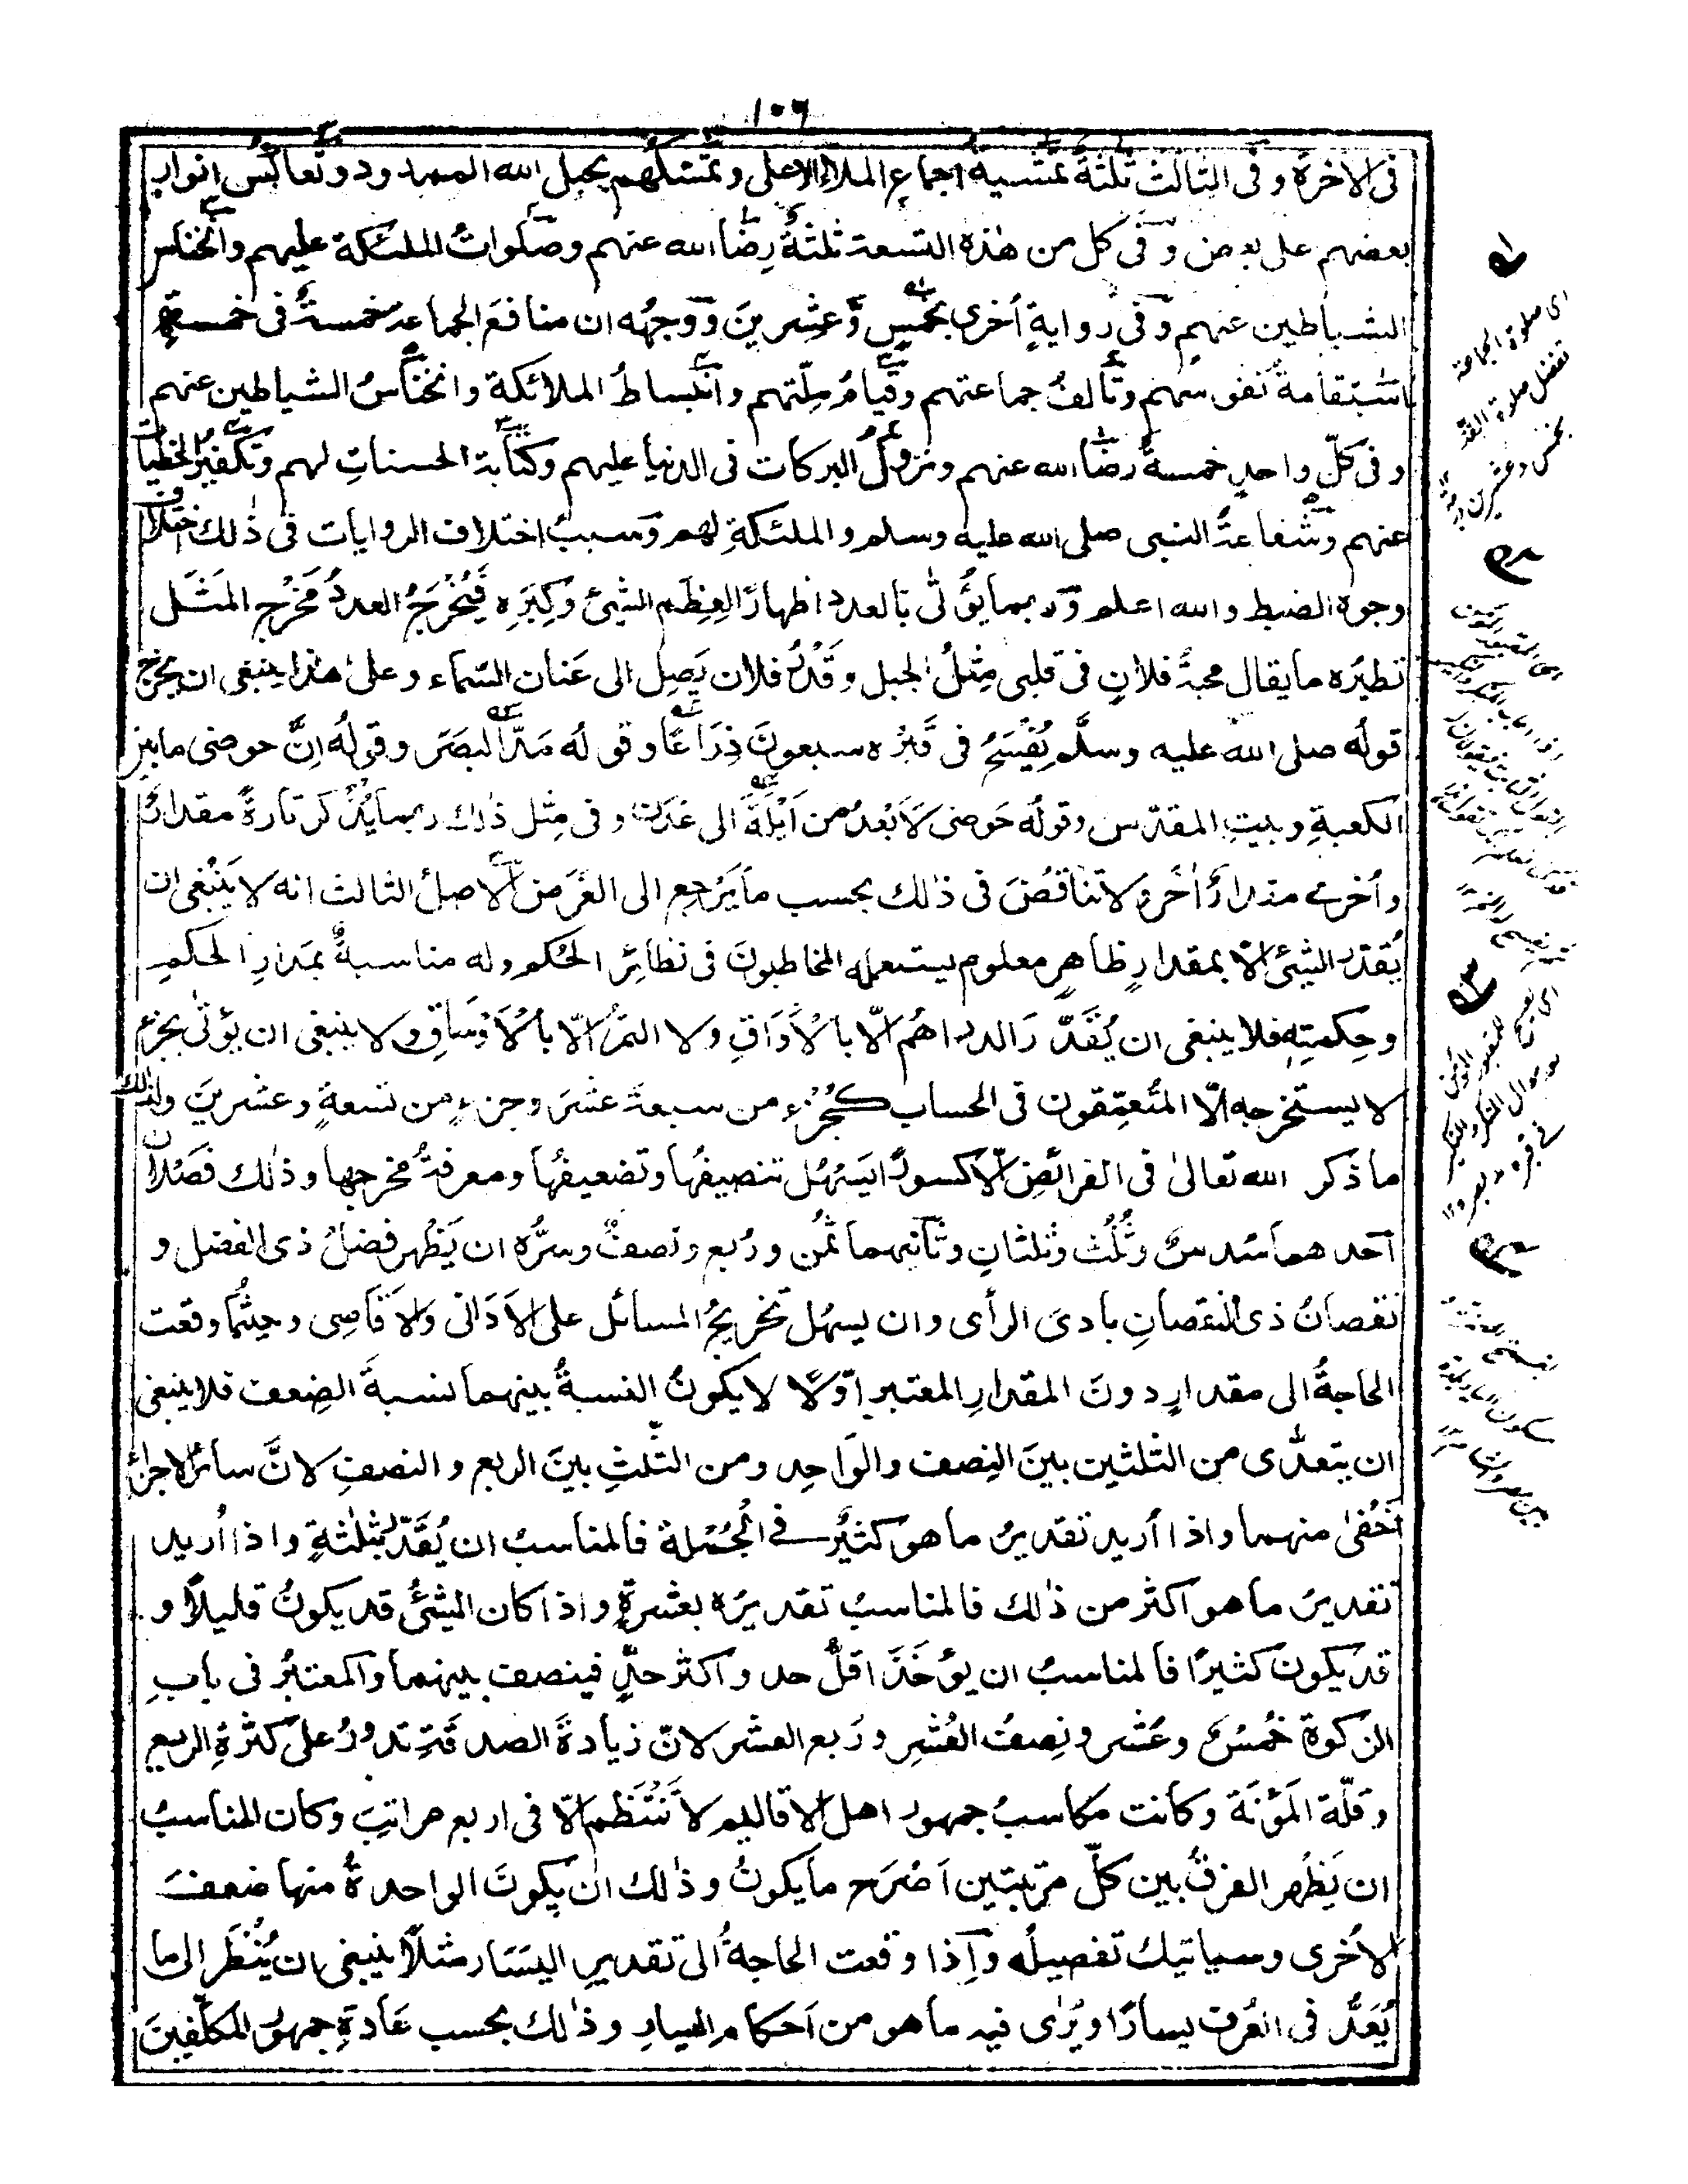 ١٠٦
فى الاخرة و فى الثالث ثلثةٌ تمشيةُ اجماع الملاء الاعلى و تمسكُهم بحبل الله الممدود و تعاكُسُ انوار
بعضهم على بعض و فى كل من هٰذه التسعة ثلثةٌ رضَا الله عنهم وصلواتُ الملئكة عليهم وانخناس
الشياطين عنهم و فى روايةٍ أُخرى بخمسٍ وَّعشرينَ ووجهُه ان منافعَ الجماعة خمسةٌ فى خمسةٍ
استقامةُ نفوسهم و تألفُ جماعتهم و قيامُ مِلّتهم و انبساطُ الملائكة و انخناسُ الشياطين عنهم
و فى كلّ واحدٍ خمسةٌ رضَا الله عنهم و نزولُ البركات فى الدنيا عليهم و كتابة الحسناتِ لهم و تكفيرُ الخطيات
عنهم و شفاعةُ النبى صلى الله عليه وسلم و الملئكةِ لهم و سببُ اختلاف الروايات فى ذٰلك اختلاف
وجوه الضبط و الله اعلم و ربما يؤتٰى بالعدد اظهارًا لعِظَم الشيئ و كِبَرِه فيُخْرَجُ العددُ مَخْرج المَثَل
نظيره ما يقال محبةُ فلانٍ فى قلبى مِثلُ الجبل و قَدْرُ فلان يَصِل الى عَنان السّماء و على هٰذا ينبغى ان يخرج
قولُه صلى الله عليه وسلّم يُفْسَحُ فى قَبْره سبعونَ ذِرَاعًا و قولُه مَدّ البصَرَ و قولُه اِنّ حوضى ما بين
الكعبةِ و بيتِ المقدّس و قولُه حَوضى لَاَبْعدُ من اَيْلَةَ الى عَدَنَ و فى مِثل ذٰلك ربما يُذْكر تارةً مقدارٌ
و أُخرى مقدارٌ أٰخَر و لا تناقُضَ فى ذٰلك بحسب ما يَرْجع الى الغَرَض الاصلُ الثالث انه لا يَنْبغى ان
يُقدّر الشيئ الّا بمقدارٍ ظاهرٍ معلوم يستعمله المخاطبونَ فى نظائر الحُكم و له مناسبةٌ بمَدارِ الحكم
و حِكمتِه فلا ينبغى ان يُقَدَّرَ الدراهمُ الّا بالْاَوَاقِ و لا التمرُ الّا بالْاَوْسَاقِ و لا ينبغى ان يؤتٰى بجزءٍ
لا يستخرجه الّا المُتَعمِّقون فى الحساب كجُزْءٍ من سبعةَ عشَرَ و جزءٍ من تسعةٍ و عشرينَ و لذٰلك
ما ذكر الله تعالىٰ فى الفرائض الّا كسورًا يَسْهُل تنصيفُها و تضعيفُها و معرفةُ مخرجِها و ذٰلك فَصْلان
اَحدهما سُدسٌ و ثُلُثٌ و ثلثانِ و ثانيهما ثُمن و رُبع و نصفٌ و سرُّه ان يَظْهر فضلُ ذى الفضل و
نقصانُ ذى النقصانِ بادىَ الرأى و ان يسهُل تخريجُ المسائل على الاَدَانى و الاَقاصى و حيثُما وقعت
الحاجةُ الى مقدارٍ دونَ المقدارِ المعتبر اوّلًا لا يكونُ النسبةُ بينهما نسبةَ الضِعف فلا ينبغى
ان يتعدّى من الثلثين بينَ النِصف و الوَاحِد و من الثّلثِ بينَ الربع و النصفِ لانَّ سائرَ الاجزاء
اَخْفىٰ منهما و اذا أُريد تقديرُ ما هو كثيرٌ فى الجُمْلة فالمناسبُ ان يُقَدَّر بثلٰثةٍ و اذا أُريد
تقديرُ ما هو اكثر من ذٰلك فالمناسبُ تقديرُه بعشرةٍ و اذا كان الشئُ قد يكونُ قليلًا و
قد يكون كثيرًا فالمناسبُ ان يؤخَذَ اقلُّ حد و اكثر حدٍّ فينصف بينهما و المعتبرُ فى بابِ
الزكوة خُمُسٌ و عُشر و نِصفُ العُشِر و رُبع العشر لانّ زيادةَ الصدقةِ تدورُ على كثرةِ الريع
و قلّة المَؤنَة و كانت مكاسبُ جمهور اهل الاقاليم لا تَنْتَظم الّا فى اربع مراتبَ و كان المناسبُ
ان يَظْهر الفرقُ بين كلّ مرتبتين اَصْرَح ما يكونُ و ذٰلك ان يكونَ الواحدةُ منها ضعفَ
الاُخرى و سياتيك تفصيلُه و اِذا وقعت الحاجةُ الى تقديرِ اليَسَار مثلًا ينبغى ان يُنْظَر الى ما
يُعَدُّ فى العُرف يسارًا و يُرٰى فيه ما هو من اَحكام اليسارِ و ذٰلك بحسب عَادةِ جمهورِ المكلّفينَ
اى صلوة الجماعة
تفضل صلوة الفذ
بخمس و عشرين درجة